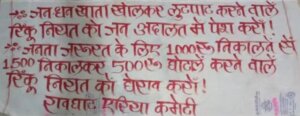 ※ जन धन खाता खोलकर लुटपाट करने वाले
रिंकु नियत को जन अदालत में पेश करों!
※ जनता जरूरत के लिए 1000रू निकालने से
1,500 निकालकर 500रू घोटाले करने वाले
रिंकू नियत को घेराव करों!
रावघाट एरिया कमेटी